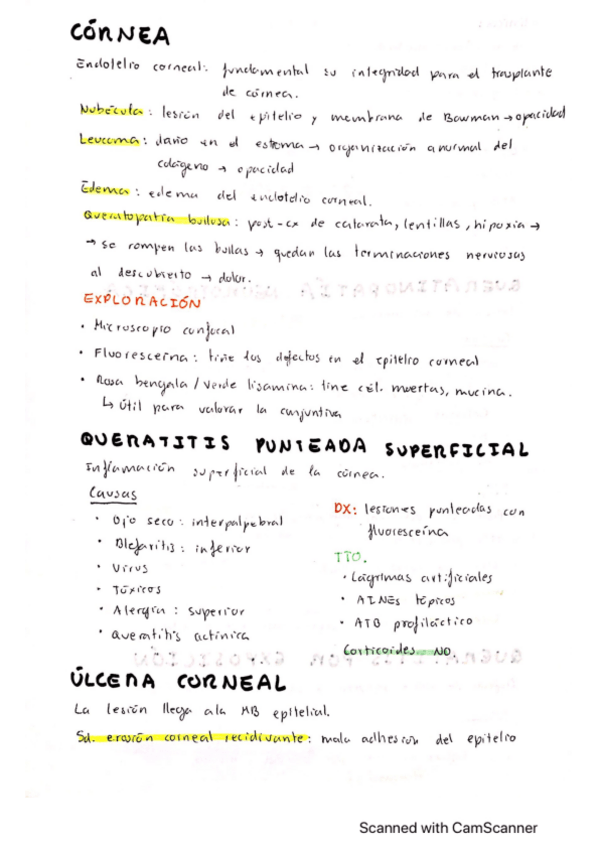 CÓRNEA
Endotelio corneal: fundamental su integridad para el trasplante
de córnea.
Nubécula: lesión del epitelio y membrana de Bowman → opacidad
Leucoma: daño en el estroma → organización anormal del
colágeno → opacidad
Edema: edema del endotelio corneal.
Queratopatía bullosa: post-cx de catarata, lentillas, hipoxia →
→ se rompen las bullas → quedan las terminaciones nerviosas
al descubierto → dolor.
EXPLORACIÓN
• Microscopio confocal
• Fluoresceína: tiñe los defectos en el epitelio corneal
• Rosa bengala / verde lisamina: tiñe cél. muertas, mucina.
↳ útil para valorar la conjuntiva
QUERATITIS PUNTEADA SUPERFICIAL
Inflamación superficial de la córnea.
Causas
• Ojo seco: interpalpebral
• Blefaritis: inferior
• Virus
• Tóxicos
• Alergia: superior
• Queratitis actínica
DX: lesiones punteadas con
fluoresceína
TTO.
• Lágrimas artificiales
• AINEs tópicos
• ATB profiláctico
Corticoides NO.
ÚLCERA CORNEAL
La lesión llega a la MB epitelial.
Sd. erosión corneal recidivante: mala adhesión del epitelio
Scanned with CamScanner